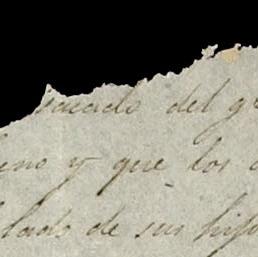 sacado del g
eno y que los
lado de sus hijo